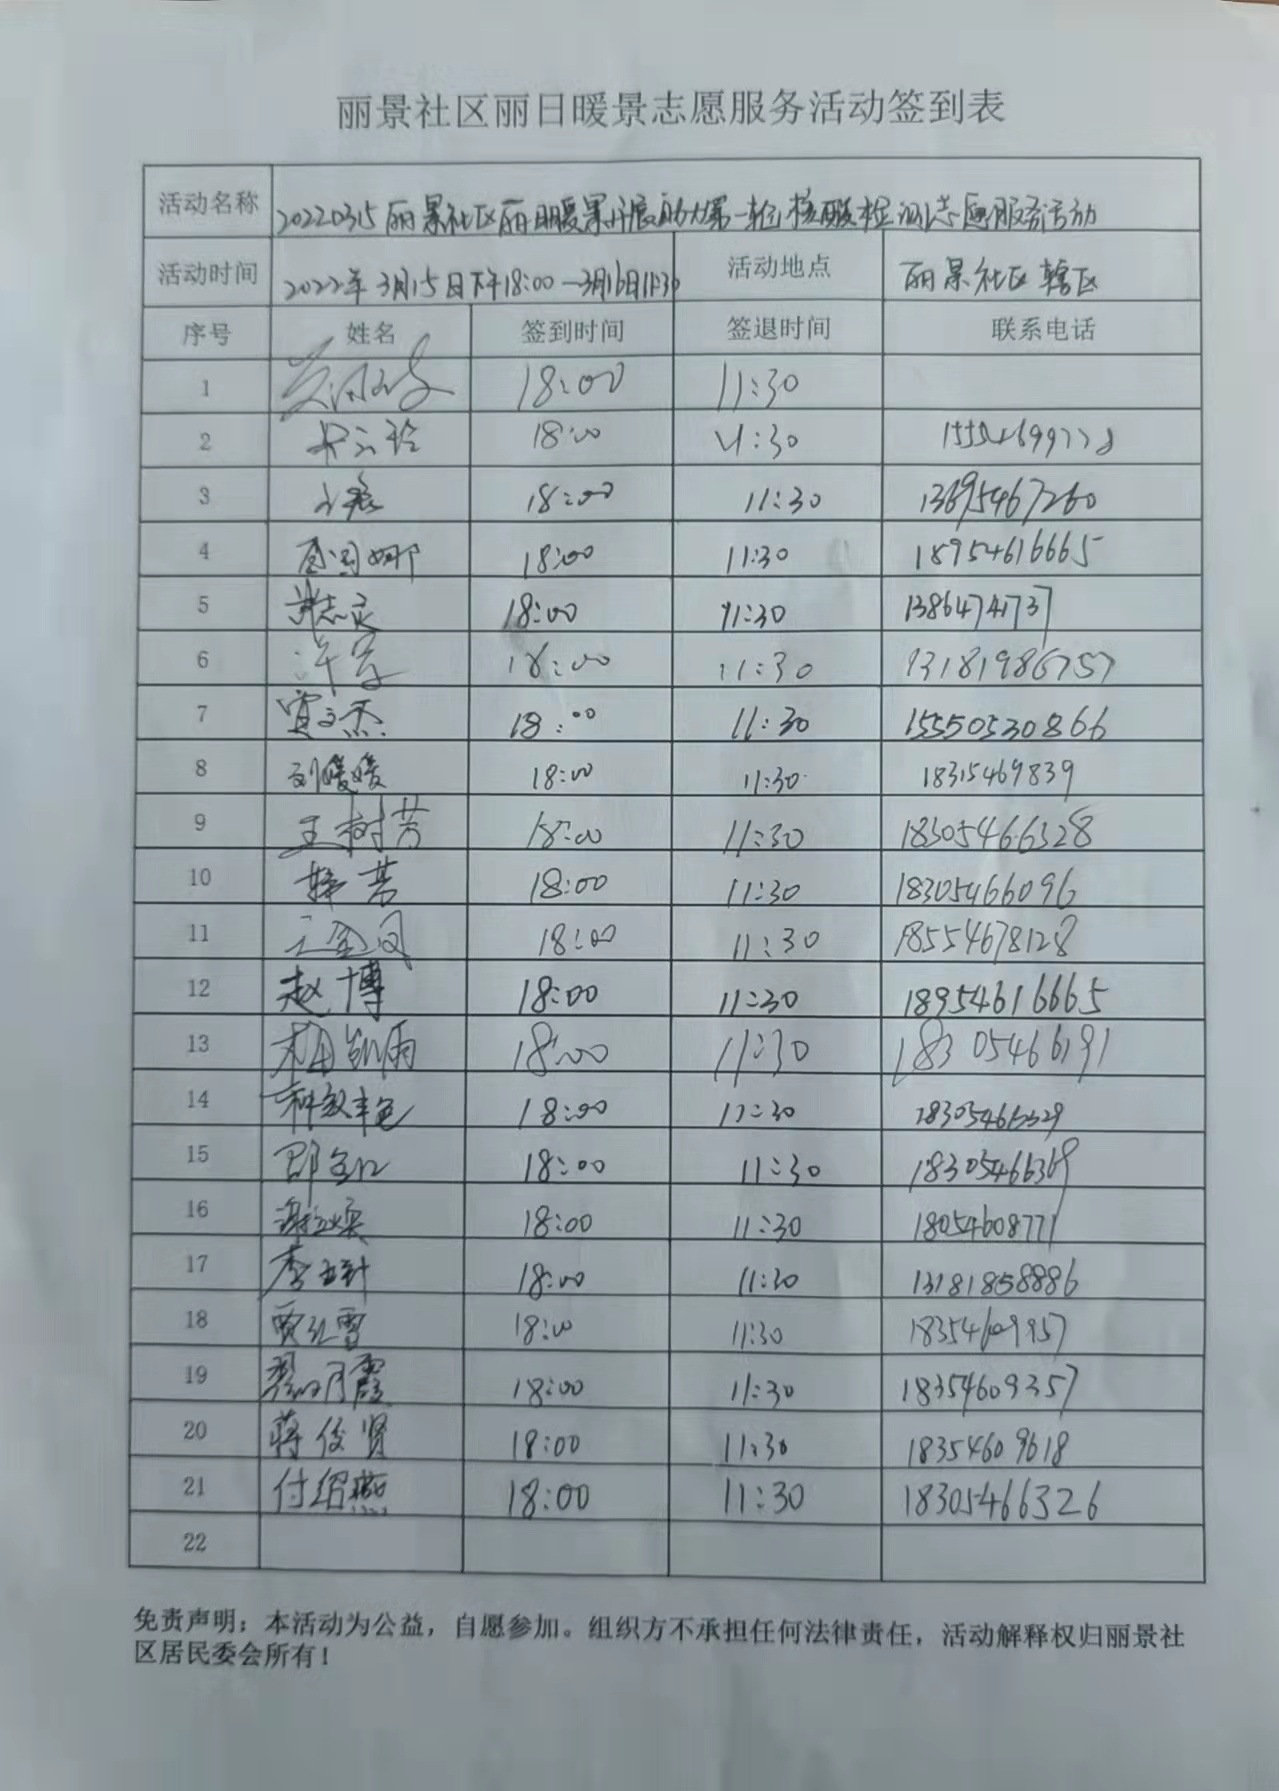 丽景社区丽日暖景志愿服务活动签到表
活动名称 20220315丽景社区丽日暖景开展助力第一轮核酸检测志愿服务活动
活动时间 2022年3月15日下午18:00—3月16日11:30 活动地点 丽景社区辖区
序号 姓名 签到时间 签退时间 联系电话
1 18:00 11:30
2 18:00 11:30
3 18:00 11:30 13695467260
4 18:00 11:30 18954616665
5 18:00 11:30 13864741737
6 许军 18:00 11:30 13181986757
7 贾文杰 18:00 11:30 15550530866
8 刘媛媛 18:00 11:30 18315469839
9 王树芳 18:00 11:30 18305466328
10 韩芳 18:00 11:30 18305466096
11 王金凤 18:00 11:30 18554678128
12 赵博 18:00 11:30 18954616665
13 18:00 11:30 18305466191
14 18:00 11:30 18305466329
15 18:00 11:30 18305466369
16 18:00 11:30 18054608771
17 18:00 11:30 13181858886
18 18:00 11:30 18354609957
19 18:00 11:30 18354609357
20 蒋俊贤 18:00 11:30 18354609618
21 付绍燕 18:00 11:30 18305466326
22
免责声明：本活动为公益，自愿参加。组织方不承担任何法律责任，活动解释权归丽景社
区居民委会所有！